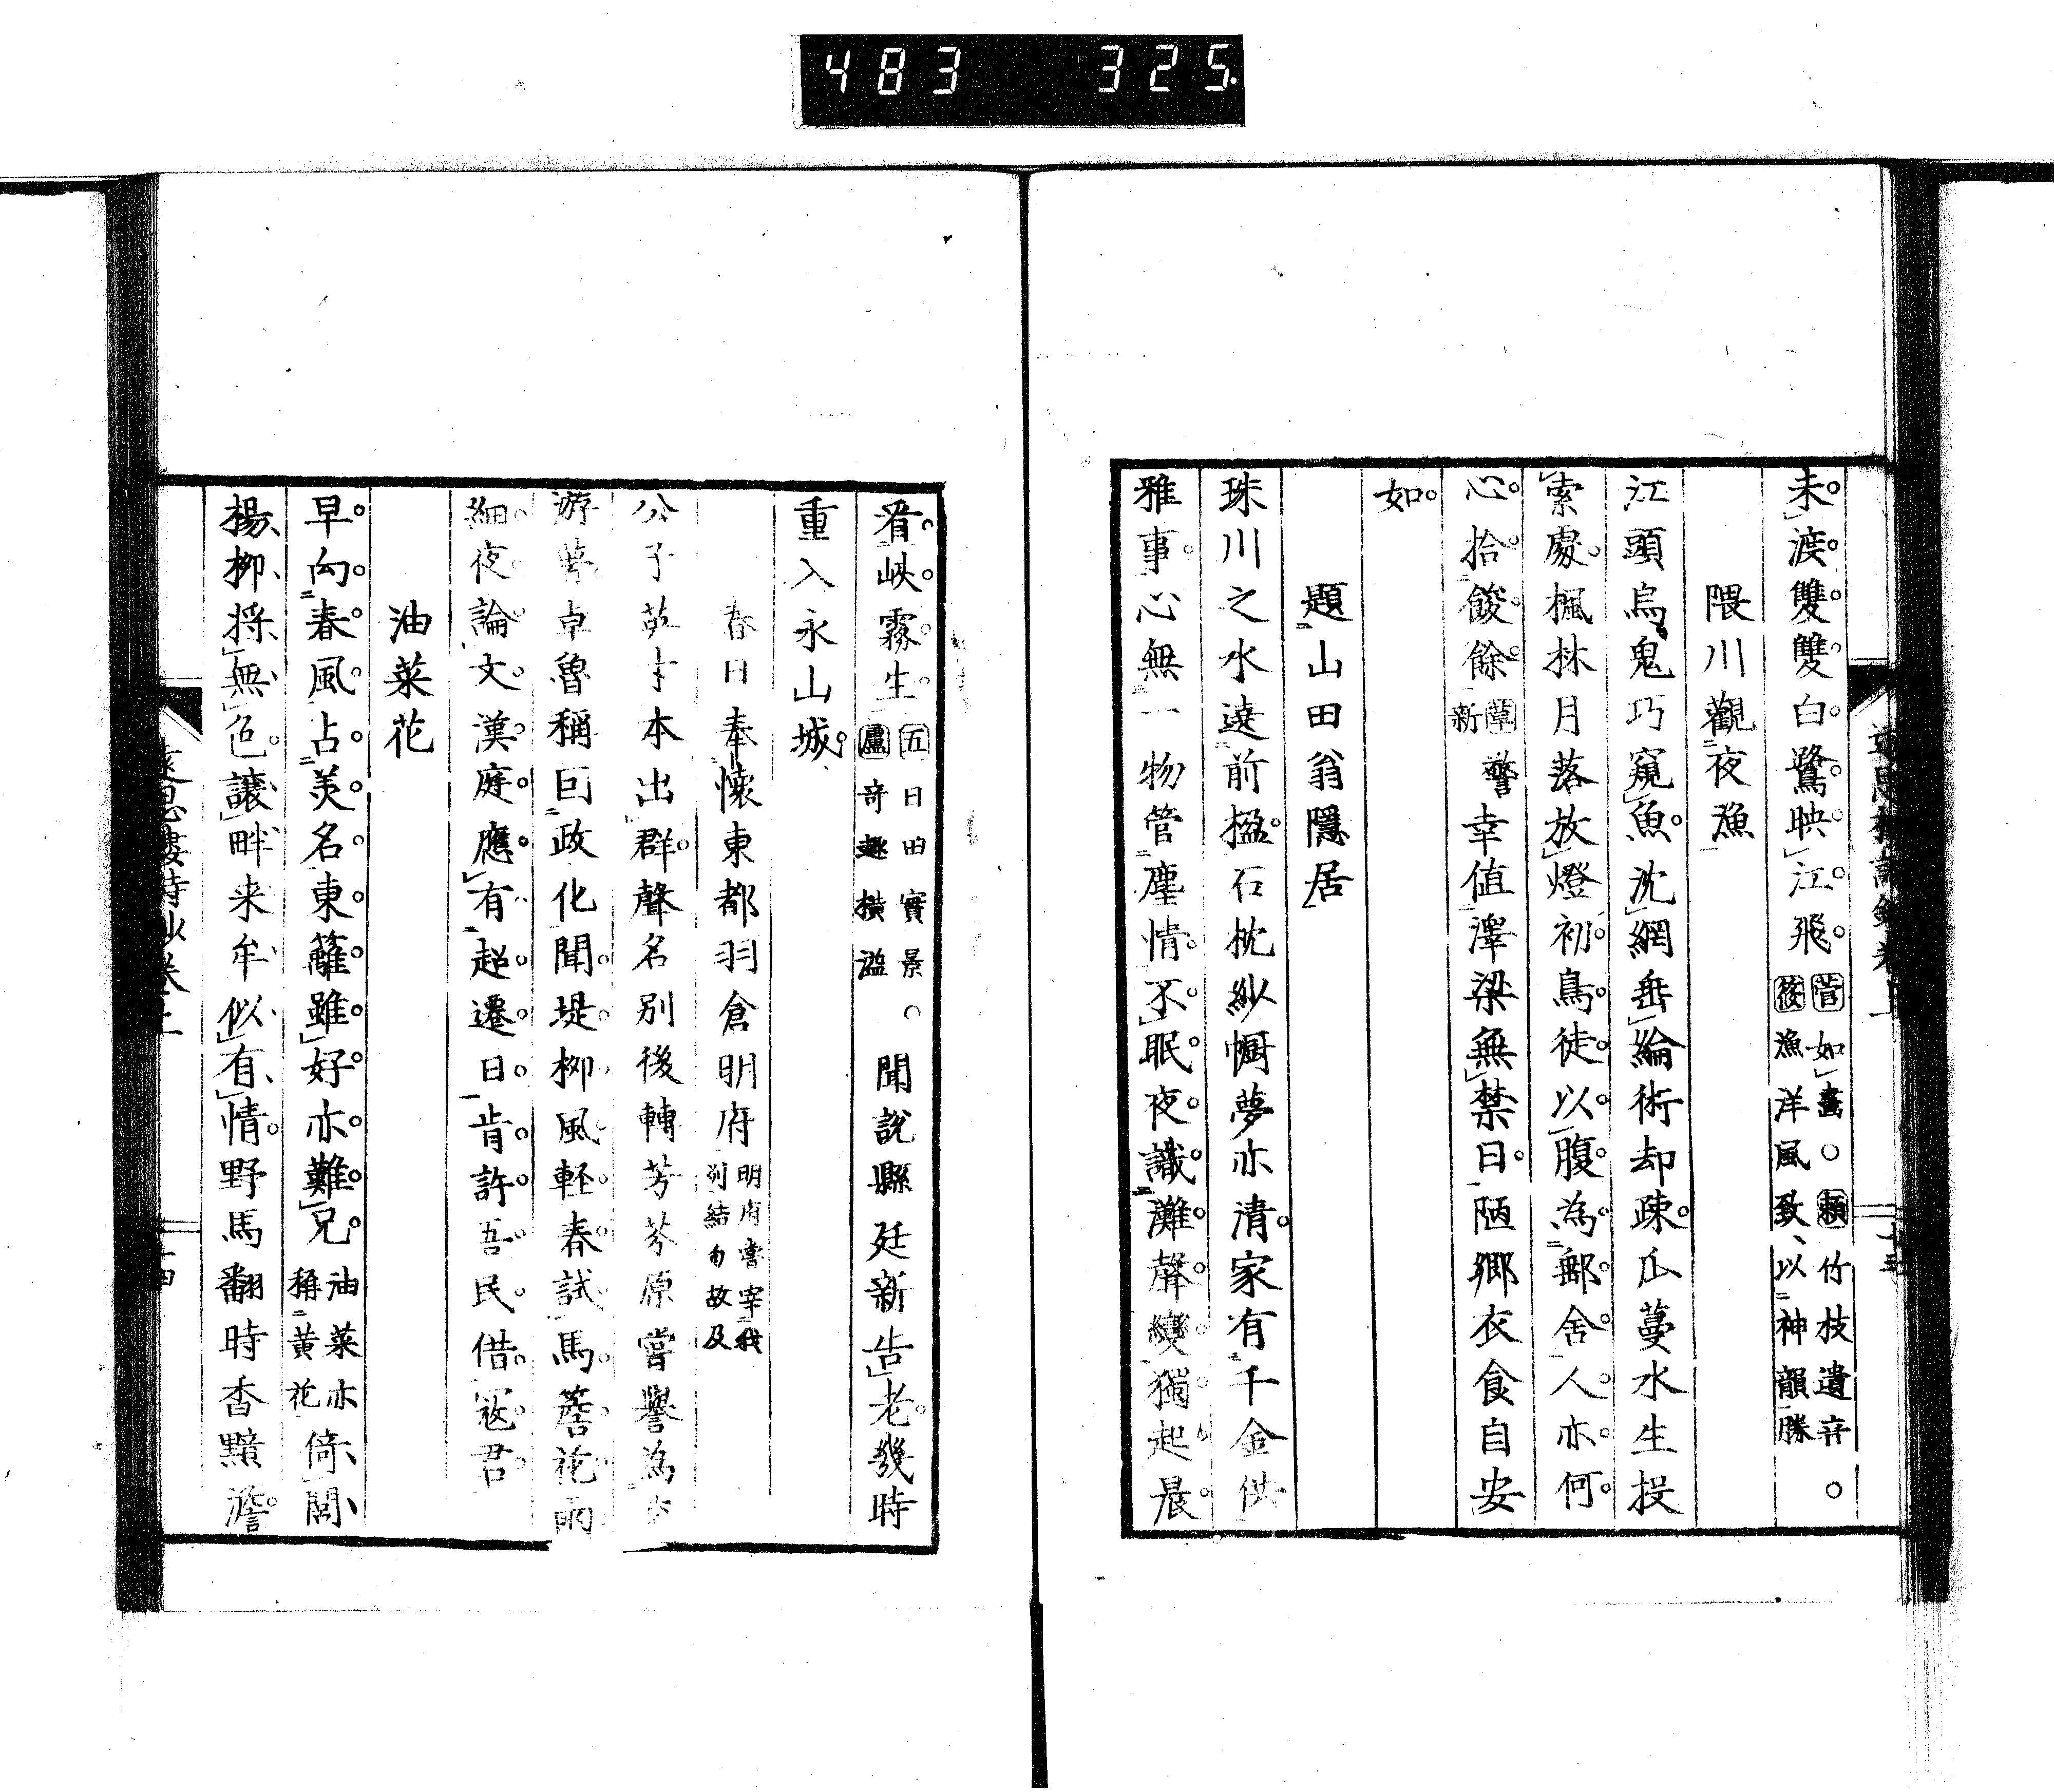 483 325
未渡雙雙白鷺映江飛 菅如畫○頼竹枝遺音。
筱漁洋風致以神韻勝
隈川觀夜漁
江頭烏鬼巧窺魚沈網垂綸術却疎瓜蔓水生投
索處楓林月落放燈初鳥徒以腹為郵舍人亦何
心拾餕餘 草警
新 幸值澤梁無禁日陋郷衣食自安
如
題山田翁隱居
珠川之水遶前楹石枕紗㡡夢亦清家有千金供
雅事心無一物管塵情不眠夜識灘聲變獨起晨
看峽霧生 五日田實景。
盧奇趣橫溢 聞說縣廷新告老幾時
重入永山城
春日奉懷東都羽倉明府 明府嘗宰我
列結句故及
公子英才本出群聲名別後轉芳芬原嘗譽為
游夢卓魯稱巨政化聞堤柳風輕春試馬簷花雨
細夜論文漢庭應有超遷日肯許吾民借寇君
油菜花
早向春風占美名東籬雖好亦難兄 油菜亦
稱黄花 倚閭
楊柳將無色讓畔来牟似有情野馬翻時香黯澹
遠思樓詩鈔卷上
十三
十四